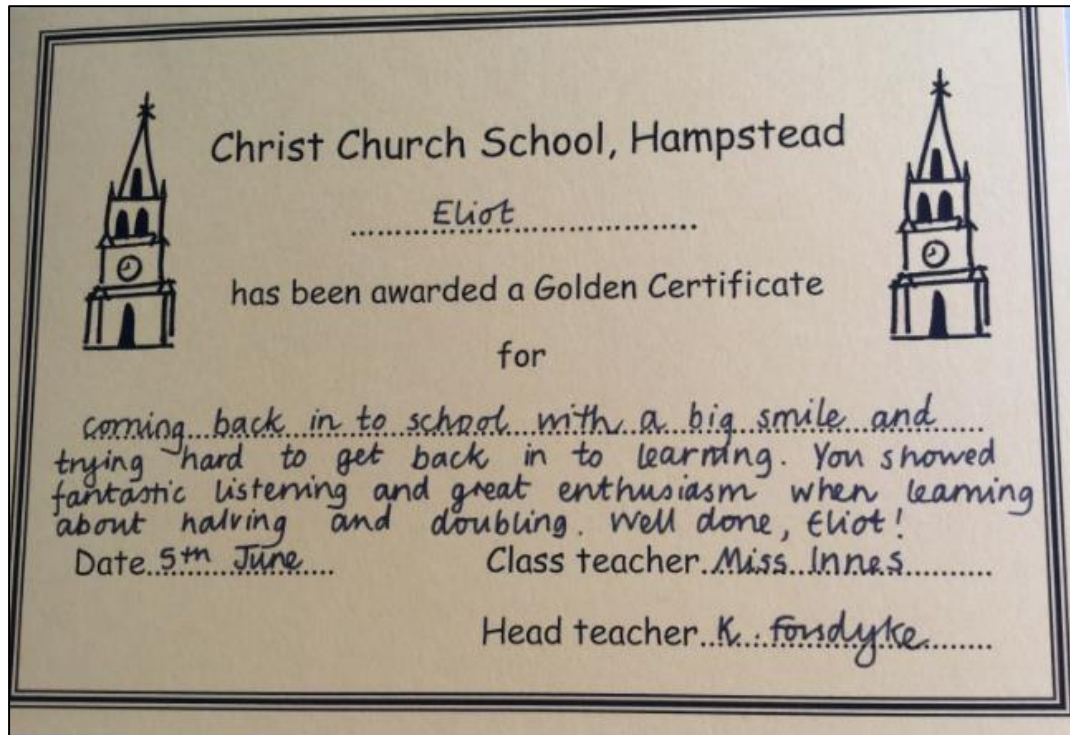 Christ Church School, Hampstead
Eliot
has been awarded a Golden Certificate
for
coming back in to school with a big smile and
trying hard to get back in to learning. You showed
fantastic listening and great enthusiasm when learning
about halving and doubling. Well done, Eliot!
Date 5th June Class teacher Miss Innes
Head teacher K. Fondyke